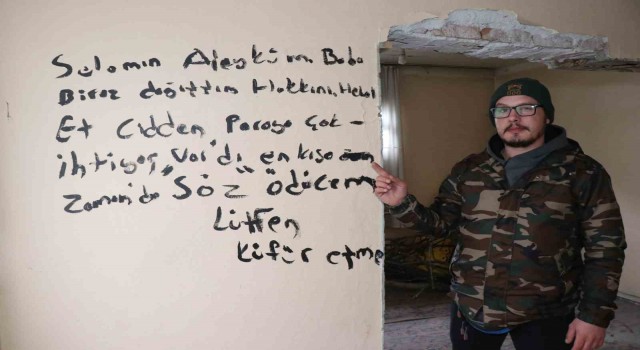 Selamın Aleyküm Baba
Biraz dağıttım Hakkını Helal
Et Cidden Paraya çok -
ihtiyaç Vardı en kısa
Zamanda "SÖZ" Ödücem
Lütfen
Küfür etme